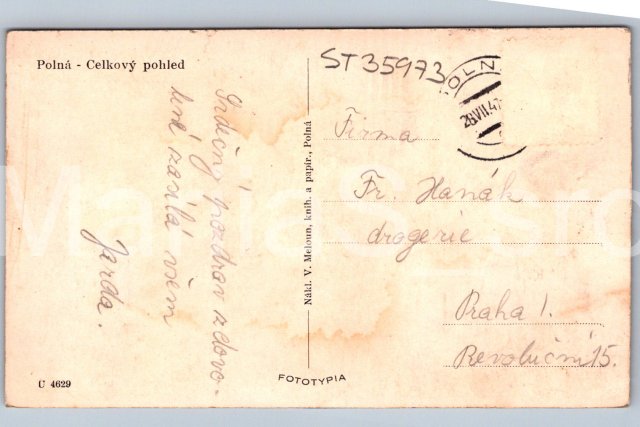 Polná - Celkový pohled
ST35973
POLN
28.VII.47
Srdečný pozdrav z dovo-
lené zasílá všem
Jarda.
Nákl. V. Meloun, knih. a papír., Polná
Firma
Fr. Hanák
drogerie
Praha 1.
Revoluční 15.
U 4629
FOTOTYPIA